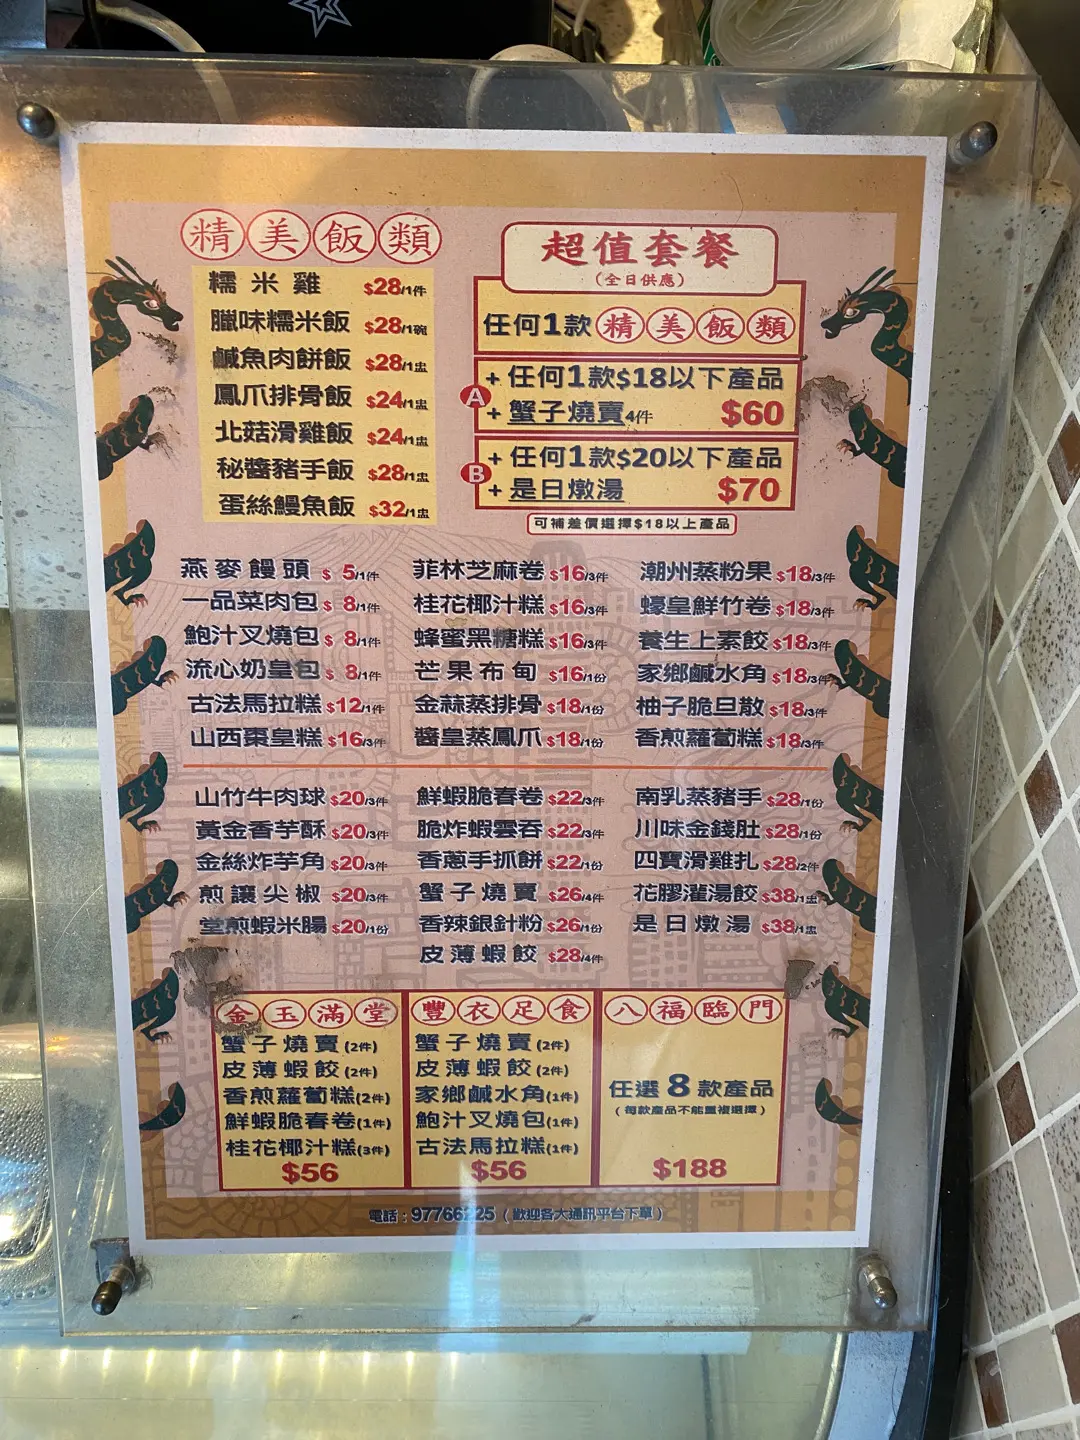 精美飯類
糯米雞 $28/1件
臘味糯米飯 $28/1碗
鹹魚肉餅飯 $28/1盅
鳳爪排骨飯 $24/1盅
北菇滑雞飯 $24/1盅
秘醬豬手飯 $28/1盅
蛋絲鰻魚飯 $32/1盅
超值套餐
(全日供應)
任何1款精美飯類
A
+ 任何1款$18以下產品
+ 蟹子燒賣4件 $60
B
+ 任何1款$20以下產品
+ 是日燉湯 $70
可補差價選擇$18以上產品
燕麥饅頭 $5/1件
一品菜肉包 $8/1件
鮑汁叉燒包 $8/1件
流心奶皇包 $8/1件
古法馬拉糕 $12/1件
山西棗皇糕 $16/3件
菲林芝麻卷 $16/3件
桂花椰汁糕 $16/3件
蜂蜜黑糖糕 $16/3件
芒果布甸 $16/1份
金蒜蒸排骨 $18/1份
醬皇蒸鳳爪 $18/1份
潮州蒸粉果 $18/3件
蠔皇鮮竹卷 $18/3件
養生上素餃 $18/3件
家鄉鹹水角 $18/3件
柚子脆旦散 $18/3件
香煎蘿蔔糕 $18/3件
山竹牛肉球 $20/3件
黃金香芋酥 $20/3件
金絲炸芋角 $20/3件
煎讓尖椒 $20/3件
堂煎蝦米腸 $20/1份
鮮蝦脆春卷 $22/3件
脆炸蝦雲吞 $22/3件
香蔥手抓餅 $22/1份
蟹子燒賣 $26/4件
香辣銀針粉 $26/1份
皮薄蝦餃 $28/4件
南乳蒸豬手 $28/1份
川味金錢肚 $28/1份
四寶滑雞扎 $28/2件
花膠灌湯餃 $38/1盅
是日燉湯 $38/1盅
金玉滿堂
蟹子燒賣(2件)
皮薄蝦餃(2件)
香煎蘿蔔糕(2件)
鮮蝦脆春卷(1件)
桂花椰汁糕(3件)
$56
豐衣足食
蟹子燒賣(2件)
皮薄蝦餃(2件)
家鄉鹹水角(1件)
鮑汁叉燒包(1件)
古法馬拉糕(1件)
$56
八福臨門
任選8款產品
(每款產品不能重複選擇)
$188
電話：97766225（歡迎各大通訊平台下單）